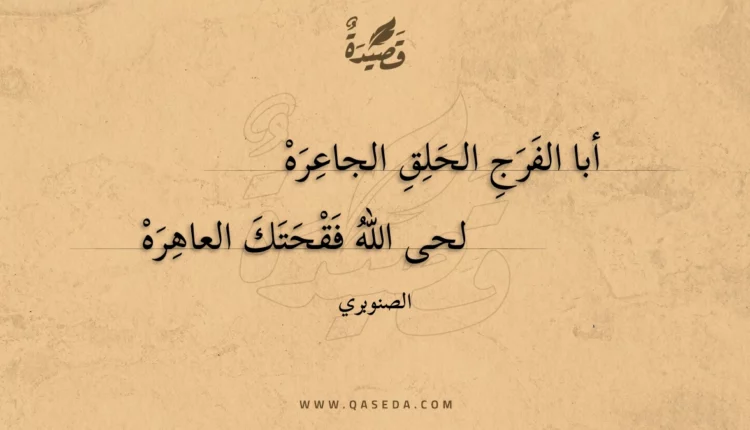 قَصِيْدَةٌ
أبا الفَرَجِ الحَلِقِ الجاعِرَهْ
لحى اللهُ فَقْحَتَكَ العاهِرَهْ
الصنوبري
WWW.QASEDA.COM